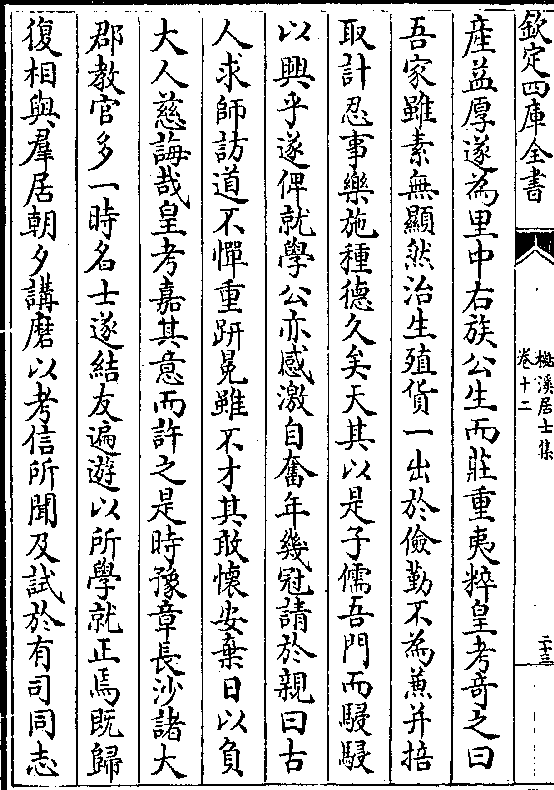 欽定四庫全書
樵溪居士集
卷十二
二十三
產益厚遂為里中右族公生而莊重夷粹皇考竒之曰
吾家雖素無顯然治生殖貨一出於儉勤不為蒹并掊
取計忍事樂施種德久矣天其以是子儒吾門而駸駸
以興乎遂俾就學公亦感激自奮年幾冠請於親曰古
人求師訪道不憚重趼冕雖不才其敢懷安棄日以負
大人慈誨哉皇考嘉其意而許之是時豫章長沙諸大
郡教官多一時名士遂結友遍遊以所學就正焉既歸
復相與羣居朝夕講磨以考信所聞及試於有司同志